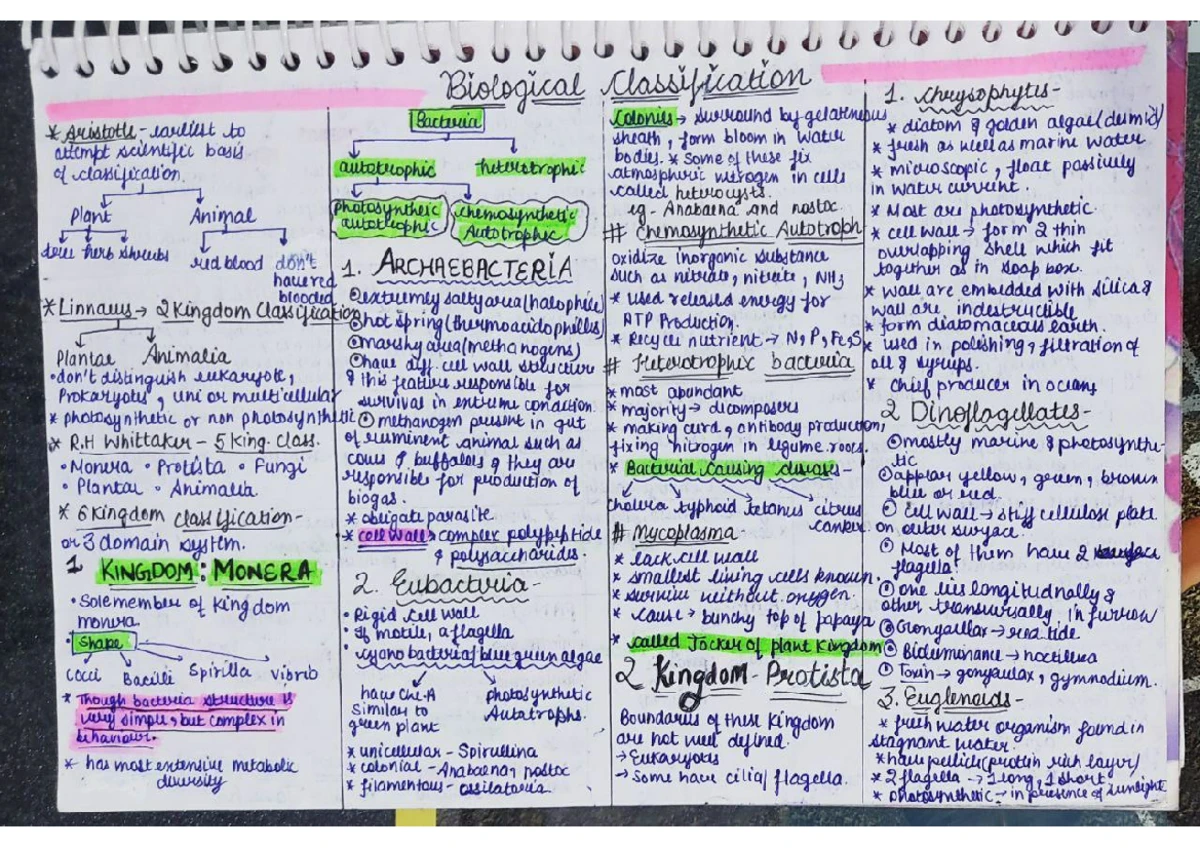 Biological Classification
* Aristotle - earliest to
attempt scientific basis
of classification.
Plant Animal
tree herb shrubs
red blood don't
have red
blooded
* Linnaeus → 2 Kingdom Classification
Plantae Animalia
• don't distinguish eukaryote,
Prokaryotes, uni or multicellular
* photosynthetic or non photosynthetic
* R.H Whittaker - 5 King. Class.
• Monera • Protista • Fungi
• Plantae • Animalia.
* 6 Kingdom classification -
or 3 domain system.
1 KINGDOM : MONERA
• Sole member of kingdom
monera.
• Shape
Cocci Bacilli Spirilla Vibrio
* Though bacteria structure is
very simple, but complex in
behaviour.
* has most extensive metabolic
diversity
Bacteria
autotrophic heterotrophic
photosynthetic
autotrophic
chemosynthetic
Autotrophic
1. ARCHAEBACTERIA
extremely salty area (halophile)
hot spring (thermoacidophilus)
marshy area (methanogens)
have diff. cell wall structure
& this feature responsible for
survivas in extreme condition.
methanogen present in gut
of ruminent animal such as
cows & buffalos & they are
responsible for production of
biogas.
* obligate parasite
* cell wall → complex polypeptide
& polysaccharides.
2. Eubacteria -
• Rigid cell wall
• If motile, a flagella
• cyano bacteria/blue green algae
have chl-A
similar to
green plant
photosynthetic
Autatrophs.
* unicellular - Spirulina
* colonial - Anabaena, nostoc
* filamentous - ossilatoria.
Colonies → surround by gelatinous
sheath, form bloom in water
bodies. * Some of these fix
atmospheric nitrogen in cells
called heterocysts.
eg - Anabaena and nostoc
# Chemosynthetic Autotroph
oxidize inorganic substance
such as nitrate, nitrite, NH3
* used released energy for
ATP Production.
* Recycle nutrient → N, P, Fe, S
# Heterotrophic bacteria
* most abundant
* majority → decomposers
* making curd, antibody production,
fixing nitrogen in legume roots.
* Bacterial causing diseases -
cholera typhoid tetanus citrus
canker.
# Mycoplasma -
* lack cell wall
* smallest living cells known.
* survive without oxygen.
* cause → bunchy top of papaya
* called Jocker of plant Kingdom
2 Kingdom - Protista
Boundaries of these kingdom
are not well defined.
→ Eukaryotes
→ Some have cilia/ flagella.
1. Chrysophytes -
* diatom & golden algae (desmid)
* fresh as well as marine water
* microscopic, float passively
in water current.
* Most are photosynthetic.
* cell wall → form 2 thin
overlapping shell which fit
together as in soap box.
* wall are embedded with silica &
wall are indestructible
* form diatomaceous earth.
* used in polishing, filtration of
oil & syrups.
* Chief producer in oceans
2 Dinoflagellates -
mostly marine & photosynthe-
tic
appear yellow, green, brown
blue or red.
Cell wall → stiff cellulose plate
on outer surface.
Most of them have 2
flagella.
one lies longitudnally &
other transversally in furrow
Gonyaullax → red tide
Biduminance → noctiluca
Toxin → gonyaulax, gymnodium.
3. Euglenoids -
* fresh water organism found in
stagnant water.
* have pellicle (protein rich layer)
* 2 flagella → 1 long, 1 short
* photosynthetic → in presence of sunlight